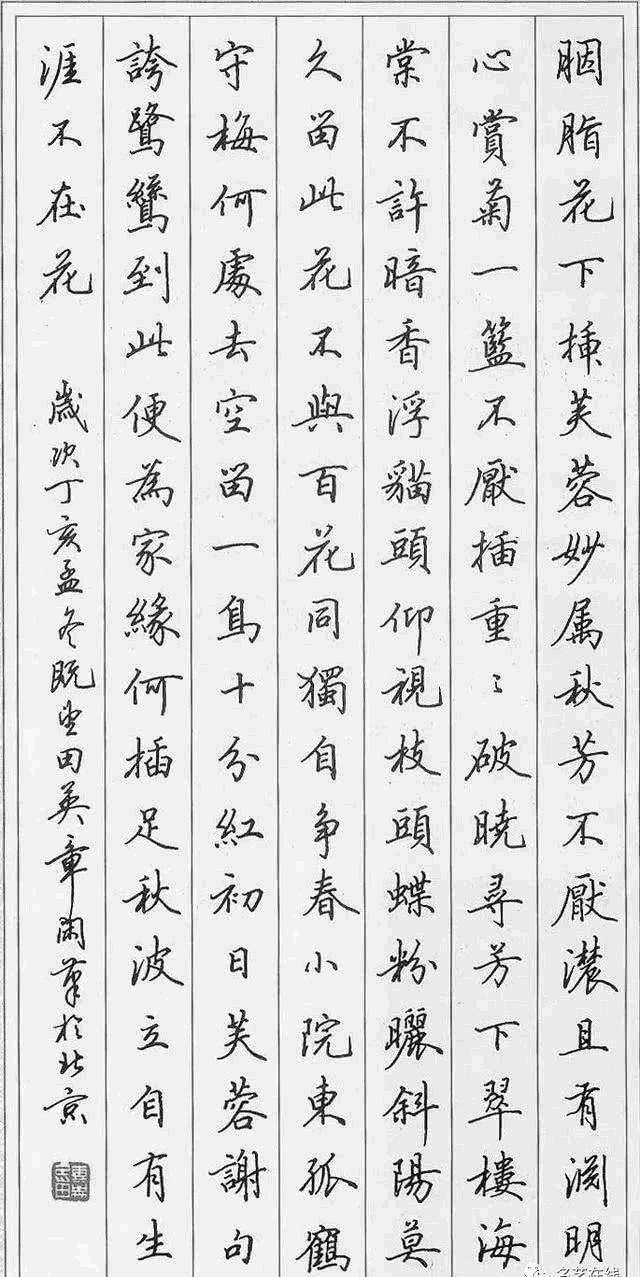 胭脂花下揷芙蓉妙属秋芳不厭濃且有渊明
心賞菊一籃不厭插重々破曉尋芳下翠樓海
棠不許暗香浮貓頭仰視枝頭蝶粉曬斜陽莫
久留此花不與百花同獨自争春小院東孤鶴
守梅何處去空留一鳥十分紅初日芙蓉謝句
誇鷺鷥到此便為家緣何插足秋波立自有生
涯不在花
歲次丁亥孟冬既望田英章閑筆於北京
名艺在线